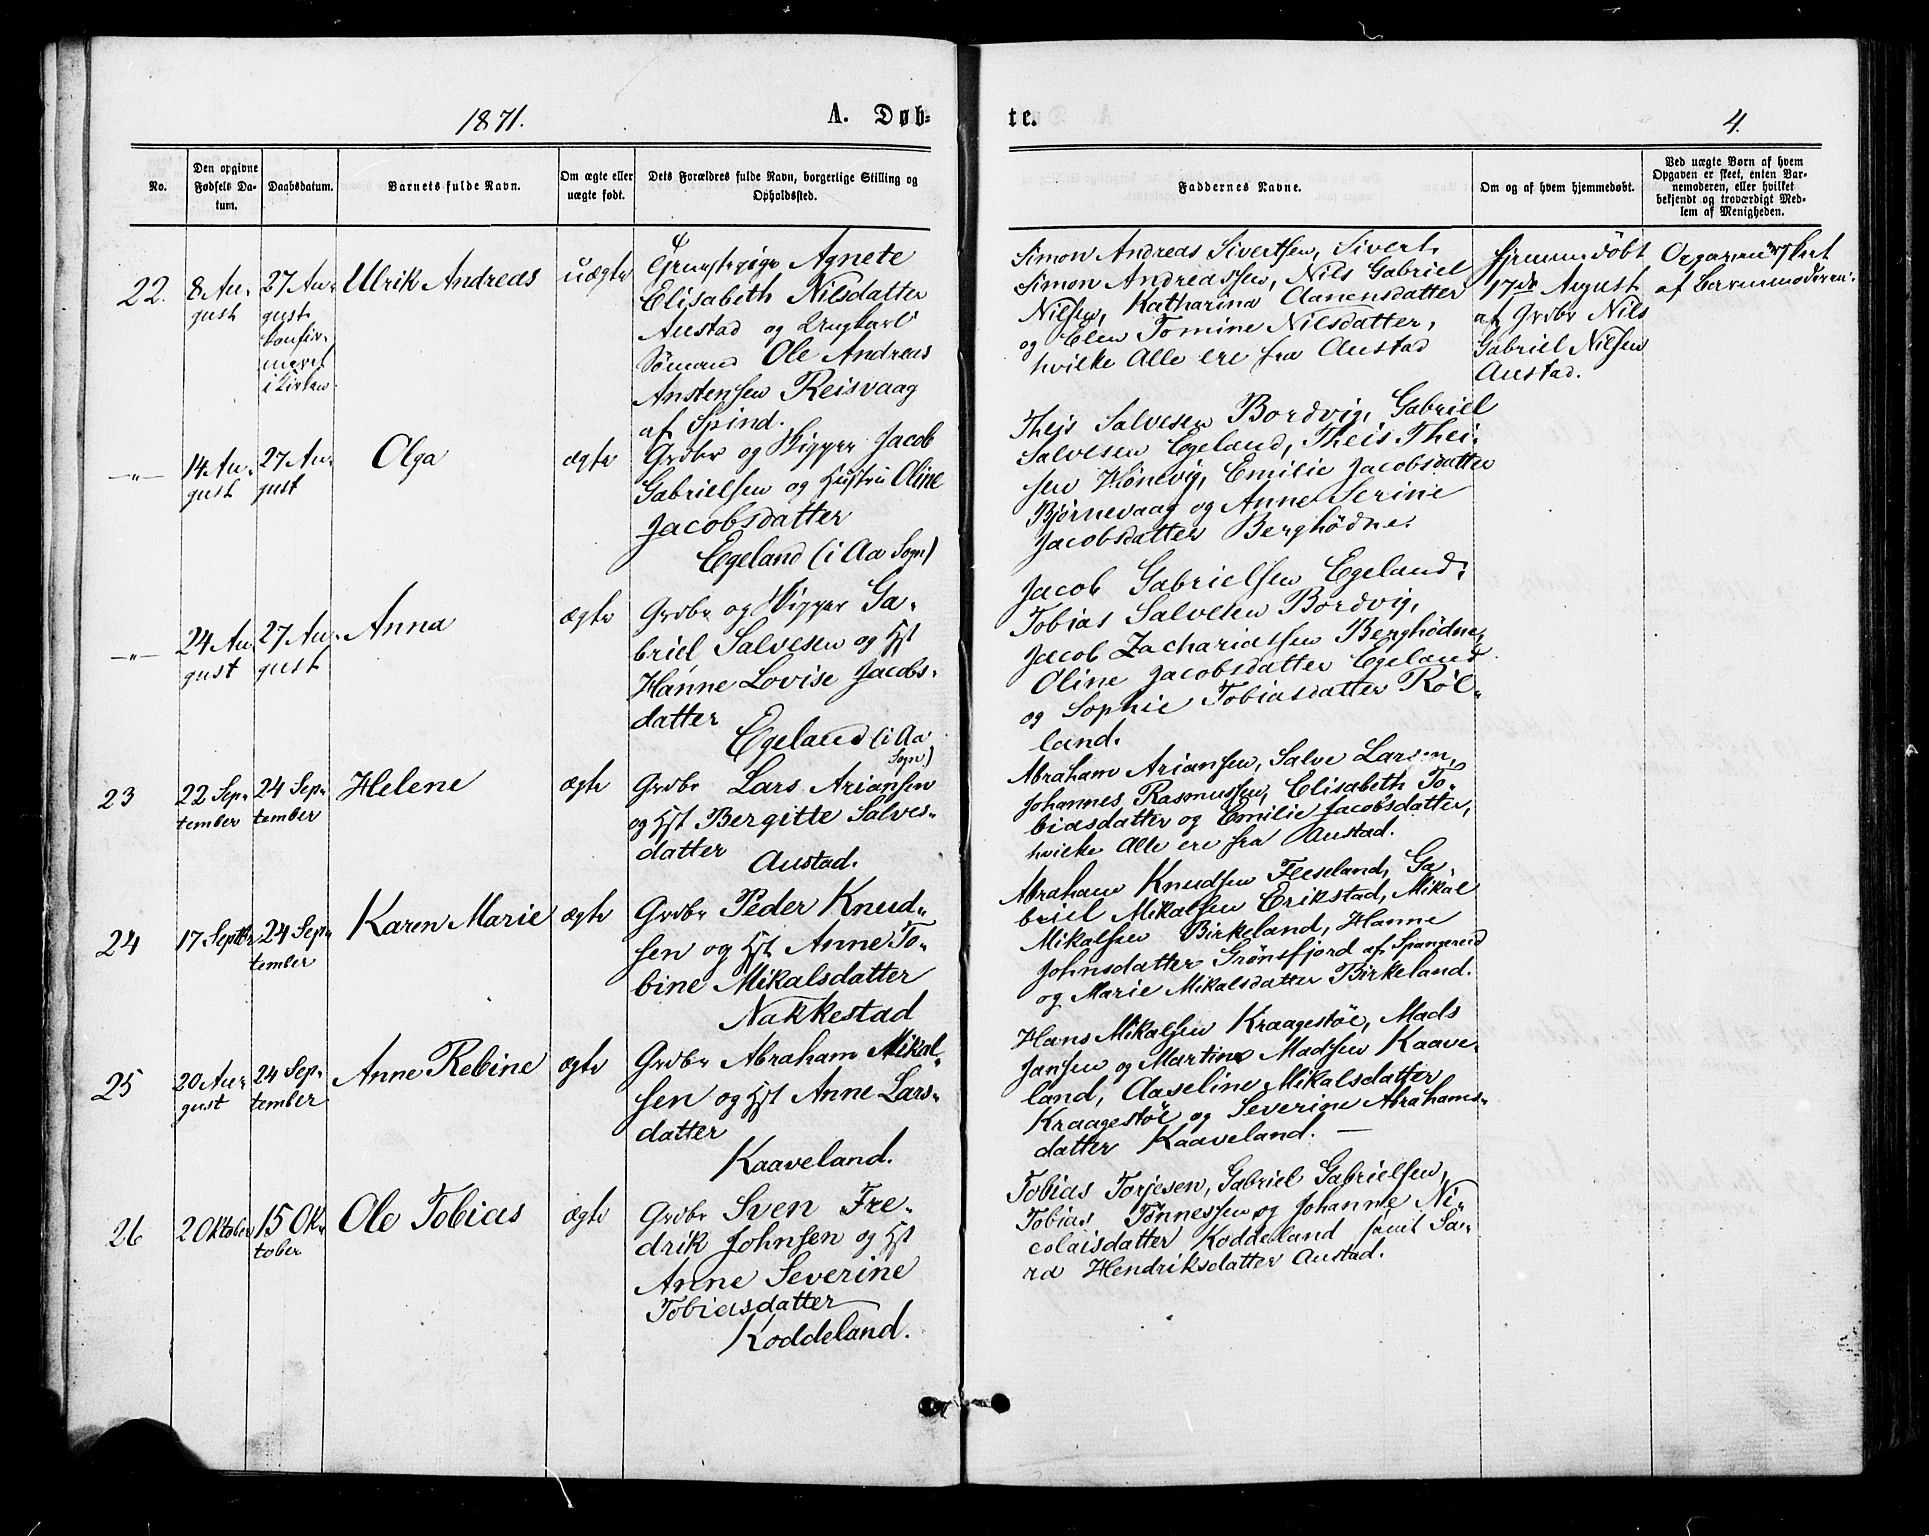 1871.
A. Døb-
te.
4.
No.
Den opgivne
Fødsels Da-
tum.
Daabsdatum.
Barnets fulde Navn.
Om ægte eller
uægte født.
Dets Forældres fulde Navn, borgerlige Stilling og
Opholdssted.
Faddernes Navne.
Om og af hvem hjemmedøbt.
Ved uægte Børn af hvem
Opgaven er skeet, enten Bar-
nemoderen, eller hvilket
bekjendt og troværdigt Med-
lem af Menigheden.
22.
8 Au-
gust
27 Au-
gust
konfir-
meret
i Kirken.
Ulrik Andreas
uægte
Agnete
Elisabeth Nilsdatter
Austad og Ungkarl
Sømand Ole Andreas
Anstensen Reisvaag
af Spind.
Simon Andreas Sivertsen, Sivert
Simon Andreassen, Nils Gabriel
Nilsen, Katharina Aanensdatter
og Elen Tomine Nilsdatter,
hvilke Alle ere fra Austad
Hjemmedöbt
17de August
af Grdbr Nils
Gabriel Nilsen
Austad.
Opgaven er skeet
af Barnemoderen.
—"—
14 Au-
gust
27 Au-
gust
Olga
ægte
Grdbr og Skipper Jacob
Gabrielsen og Hustru Oline
Jacobsdatter
Egeland (i Aa Sogn)
Theis Salvesen Bordvig, Gabriel
Salvesen Egeland, Theis Thei-
sen Hönevig, Emilie Jacobsdatter
Björnevaag og Anne Serine
Jacobsdatter Berghödne.
—"—
24 Au
gust
27 Au-
gust
Anna
ægte
Grdbr og Skipper Ga-
briel Salvesen og Hst
Hanne Lovise Jacobs-
datter
Egeland (i Aa
Sogn)
Jacob Gabrielsen Egeland,
Tobias Salvesen Bordvig,
Jacob Zachariassen Berghödne,
Oline Jacobsdatter Egeland
og Sophie Tobiasdatter Röl-
land.
23
22 Sep-
tember
24 Sep-
tember
Helene
ægte
Grdbr Lars Ariansen
og Hst Bergitte Salves-
datter
Austad.
Abraham Ariansen, Salve Larsen,
Johannes Rasmussen, Elisabeth To-
biasdatter og Emilie Jacobsdatter,
hvilke Alle ere fra Austad.
24
17 Septbr
24 Sep-
tember
Karen Marie
ægte
Grdbr Peder Knud-
sen og Hst Anne To-
bine Mikalsdatter
Nakkestad
Abraham Knudsen Fleseland, Ga-
briel Mikalsen Erikstad, Mikal
Mikalsen Birkeland, Hanne
Johnsdatter Grönsfjord af Spangereid
og Marie Mikalsdatter Birkeland.
25
20 Au-
gust
24 Sep-
tember
Anne Rebine
ægte
Grdbr Abraham Mikal-
sen og Hst Anne Lars-
datter
Kaaveland.
Hans Mikalsen Kraagestöl, Mads
Jansen og Martin Madsen Kaave-
land, Aaseline Mikalsdatter
Kraagestöl og Severine Abrahams-
datter Kaaveland. —
26
2 Oktober
15 Ok-
tober
Ole Tobias
ægte
Grdbr Sven Fre-
drik Johnsen og Hst
Anne Severine
Tobiasdatter
Koddeland.
Tobias Torjesen, Gabriel Gabrielsen,
Tobias Tönnessen og Johanne Ni-
colaisdatter Koddeland samt Sa-
ra Hendriksdatter Austad.